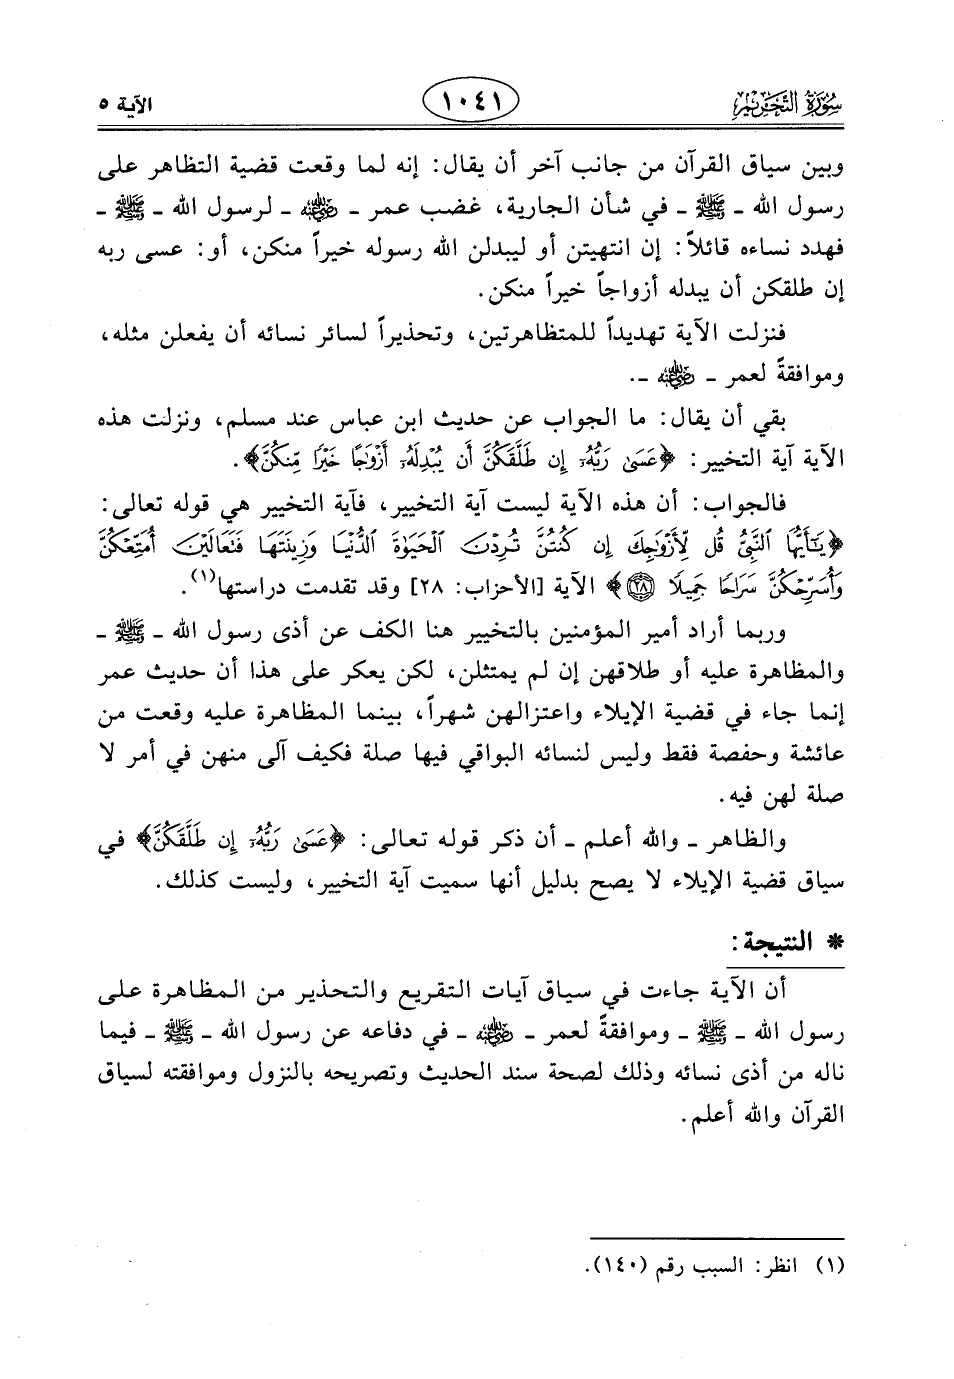 سُورَةُ التَّحْرِيمِ
١٠٤١
الآية ٥
وبين سياق القرآن من جانب آخر أن يقال: إنه لما وقعت قضية التظاهر على
رسول الله ـ ﷺ ـ في شأن الجارية، غضب عمر ـ رضي الله عنه ـ لرسول الله ـ ﷺ ـ
فهدد نساءه قائلاً: إن انتهيتن أو ليبدلن الله رسوله خيراً منكن، أو: عسى ربه
إن طلقكن أن يبدله أزواجاً خيراً منكن.
فنزلت الآية تهديداً للمتظاهرتين، وتحذيراً لسائر نسائه أن يفعلن مثله،
وموافقةً لعمر ـ رضي الله عنه ـ.
بقي أن يقال: ما الجواب عن حديث ابن عباس عند مسلم، ونزلت هذه
الآية آية التخيير: ﴿عَسَىٰ رَبُّهُۥٓ إِن طَلَّقَكُنَّ أَن يُبْدِلَهُۥٓ أَزْوَٰجًا خَيْرًا مِّنكُنَّ﴾.
فالجواب: أن هذه الآية ليست آية التخيير، فآية التخيير هي قوله تعالى:
﴿يَـٰٓأَيُّهَا ٱلنَّبِىُّ قُل لِّأَزْوَٰجِكَ إِن كُنتُنَّ تُرِدْنَ ٱلْحَيَوٰةَ ٱلدُّنْيَا وَزِينَتَهَا فَتَعَالَيْنَ أُمَتِّعْكُنَّ
وَأُسَرِّحْكُنَّ سَرَاحًا جَمِيلًا ٢٨﴾ الآية [الأحزاب: ٢٨] وقد تقدمت دراستها(١).
وربما أراد أمير المؤمنين بالتخيير هنا الكف عن أذى رسول الله ـ ﷺ ـ
والمظاهرة عليه أو طلاقهن إن لم يمتثلن، لكن يعكر على هذا أن حديث عمر
إنما جاء في قضية الإيلاء واعتزالهن شهراً، بينما المظاهرة عليه وقعت من
عائشة وحفصة فقط وليس لنسائه البواقي فيها صلة فكيف آلى منهن في أمر لا
صلة لهن فيه.
والظاهر ـ والله أعلم ـ أن ذكر قوله تعالى: ﴿عَسَىٰ رَبُّهُۥٓ إِن طَلَّقَكُنَّ﴾ في
سياق قضية الإيلاء لا يصح بدليل أنها سميت آية التخيير، وليست كذلك.
* النتيجة:
أن الآية جاءت في سياق آيات التقريع والتحذير من المظاهرة على
رسول الله ـ ﷺ ـ وموافقةً لعمر ـ رضي الله عنه ـ في دفاعه عن رسول الله ـ ﷺ ـ فيما
ناله من أذى نسائه وذلك لصحة سند الحديث وتصريحه بالنزول وموافقته لسياق
القرآن والله أعلم.
(١) انظر: السبب رقم (١٤٠).